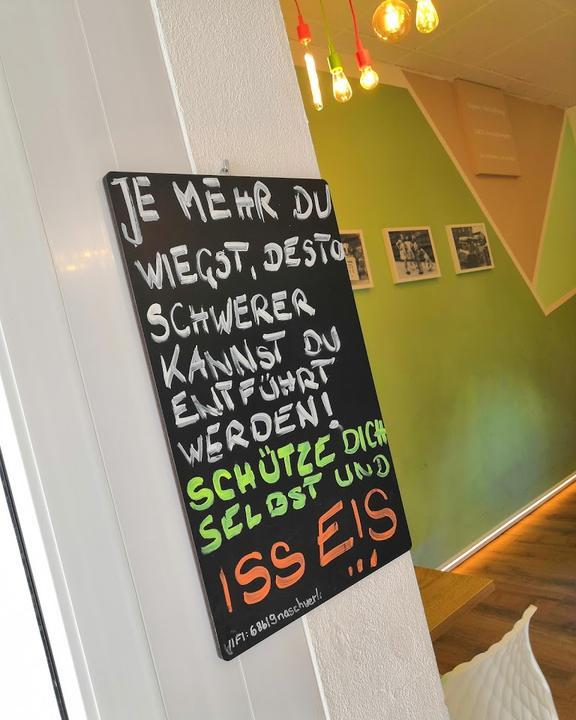 JE MEHR DU
WIEGST, DESTO
SCHWERER
KANNST DU
ENTFÜHRT
WERDEN!
SCHÜTZE DICH
SELBST UND
ISS EIS
!!!
WIFI: 68619naschwerk